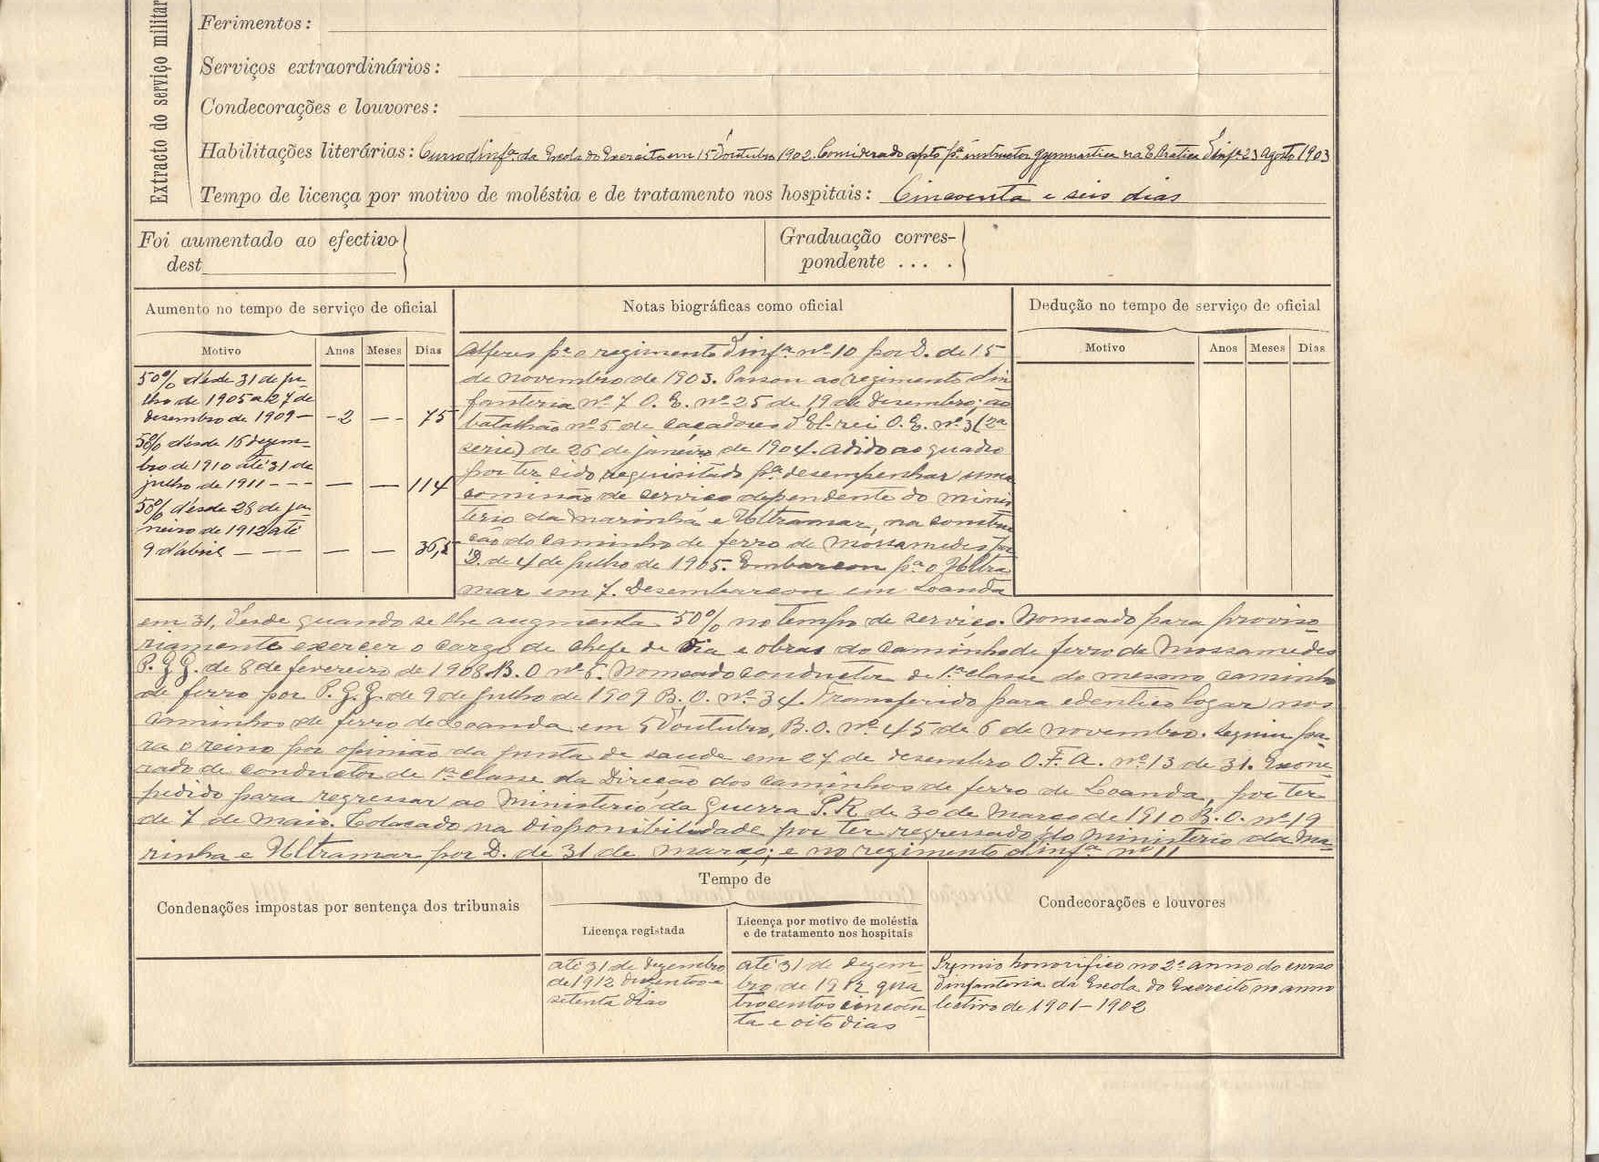 Extracto do serviço militar
Ferimentos:
Serviços extraordinários:
Condecorações e louvores:
Habilitações literárias: Curso d'infª da Escola do Exercito em 15 d'outubro 1902. Considerado apto pª instructor gymnastica na E. Pratica d'infª 23 Agosto 1903
Tempo de licença por motivo de moléstia e de tratamento nos hospitais: Cincoenta e seis dias
Foi aumentado ao efectivo
dest
Graduação corres-
pondente ... .
Aumento no tempo de serviço de oficial
Motivo Anos Meses Dias
50% desde 31 de ju-
lho de 1905 a 27 de
desembro de 1909 — 2 — 75
50% desde 16 dezem-
bro de 1910 até 31 de
julho de 1911 - - - — — 114
50% desde 28 de ja-
neiro de 1912 até
9 d'abril — - - - — — 36,5
Notas biográficas como oficial
Alferes pª o regimento d'infª nº 10 por D. de 15
de novembro de 1903. Passou ao regimento d'in
fanteria nº 7 O. E. nº 25 de 19 de Desembro; ao
batalhão nº 5 de caçadores d'El-rei O. E. nº 3 (2ª
serie) de 26 de janeiro de 1904. Adido ao quadro
por ter sido requisitado pª desempenhar uma
comissão de serviço dependente do minis
terio da Marinha e Ultramar, na constru
ção do caminho de ferro de Mossamedes por
D. de 4 de julho de 1905. Embarcou pª o Ultra
mar em 7. Desembarcou em Loanda
em 31, desde quando se lhe augmenta 50% no tempo de serviço. Nomeado para proviso
riamente exercer o cargo de chefe de via e obras do caminho de ferro de Mossamedes
P. G. G. de 8 de fevereiro de 1908 B. O nº 6. Nomeado conductor de 1ª classe do mesmo caminho
de ferro por P. G. G. de 9 de julho de 1909 B. O. nº 34. Transferido para edentico logar nos
caminhos de ferro de Loanda em 5 d'outubro, B. O. nº 45 de 6 de novembro. Seguiu pa-
ra o reino por opinião da junta de saude em 27 de desembro O. F. A. nº 13 de 31. Exone-
rado de conductor de 1ª classe da Direcção dos caminhos de ferro de Loanda, por ter
pedido para regressar ao Ministerio da Guerra P. R. de 30 de Março de 1910 B. O. nº 19
de 7 de Maio. Colocado na disponibilidade por ter regressado do ministerio da Ma-
rinha e Ultramar por D. de 31 de março; e no regimento d'infª nº 11
Dedução no tempo de serviço de oficial
Motivo Anos Meses Dias
Condenações impostas por sentença dos tribunais
Tempo de
Licença registada
até 31 de Dezembro
de 1912 duzentos e
setenta dias
Licença por motivo de moléstia
e de tratamento nos hospitais
até 31 de dezem-
bro de 1912 qua
trocentos cincoen-
ta e oito dias
Condecorações e louvores
Premio honorifico no 2º anno do curso
d'infanteria da Escola do Exercito no anno
lectivo de 1901-1902